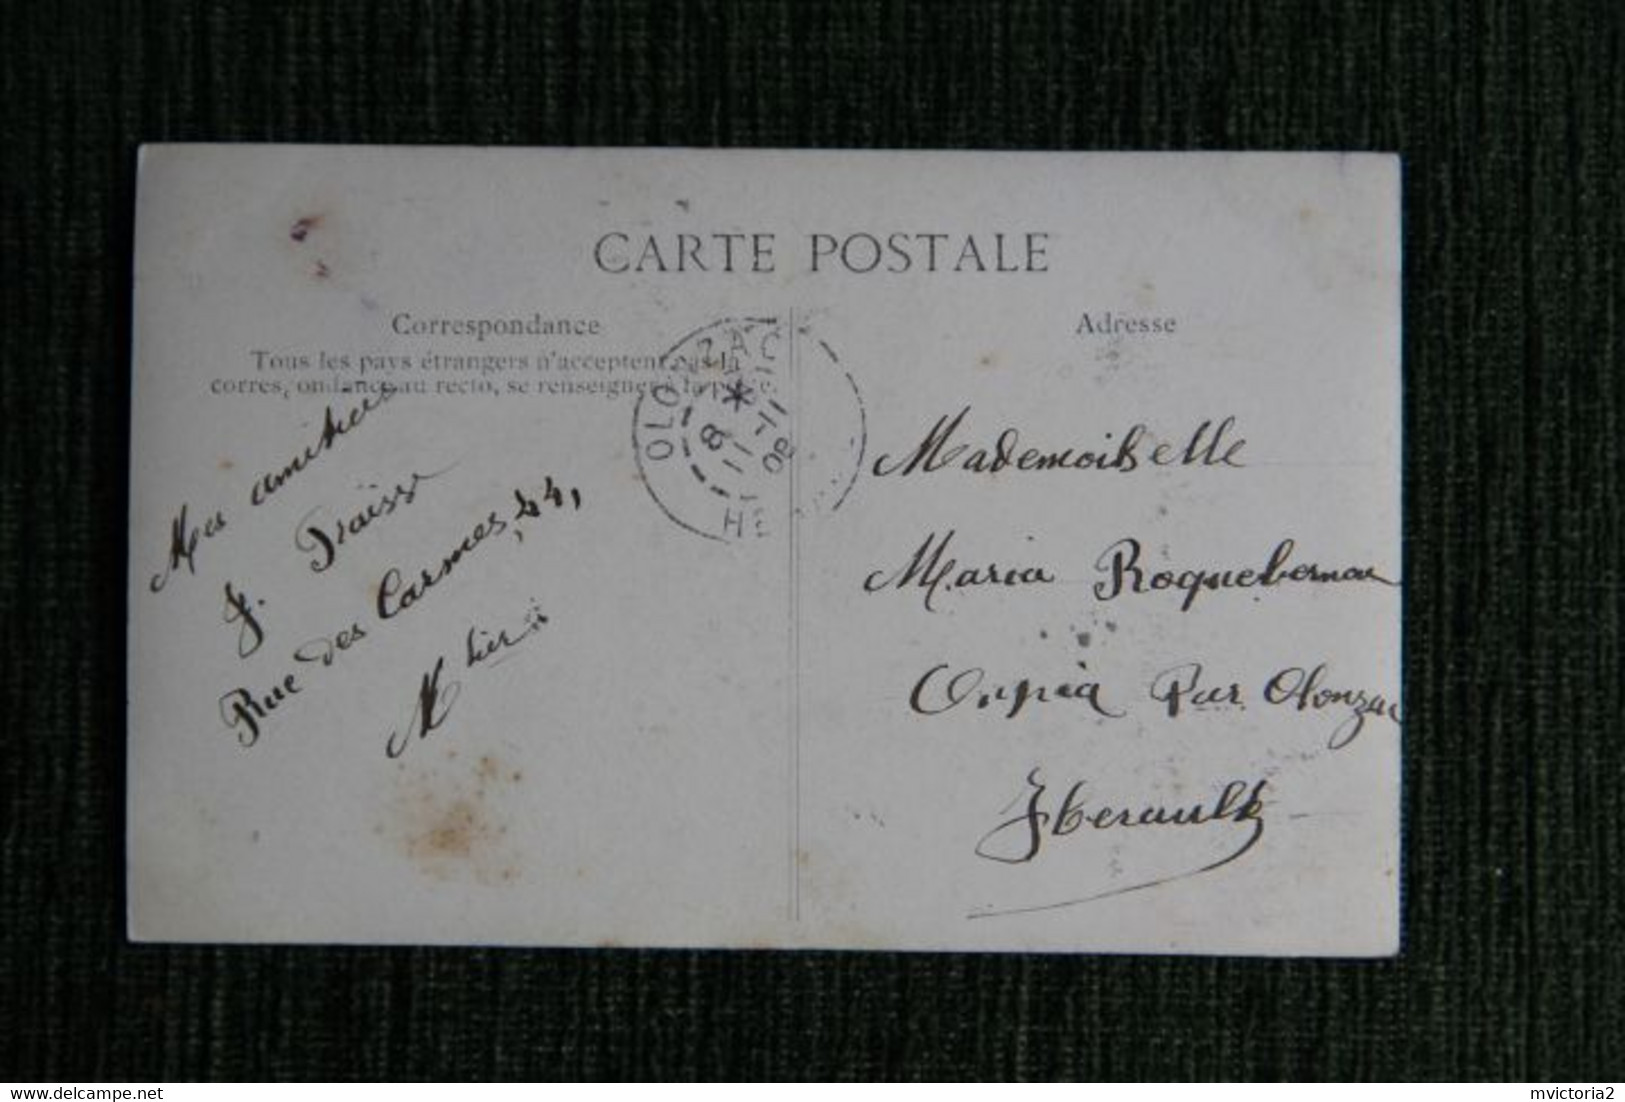 CARTE POSTALE
Correspondance
Tous les pays étrangers n'acceptent pas la
corres, ondance au recto, se renseigner à la poste.
Mes amitiés
J. Fraïsse
Rue des Carmes, 44,
OLONZAC
8 * 11
11 08
HERAULT
Adresse
Mademoiselle
Maria
Oupia Par Olonzac
Hérault
www.delcampe.net
mvictoria2